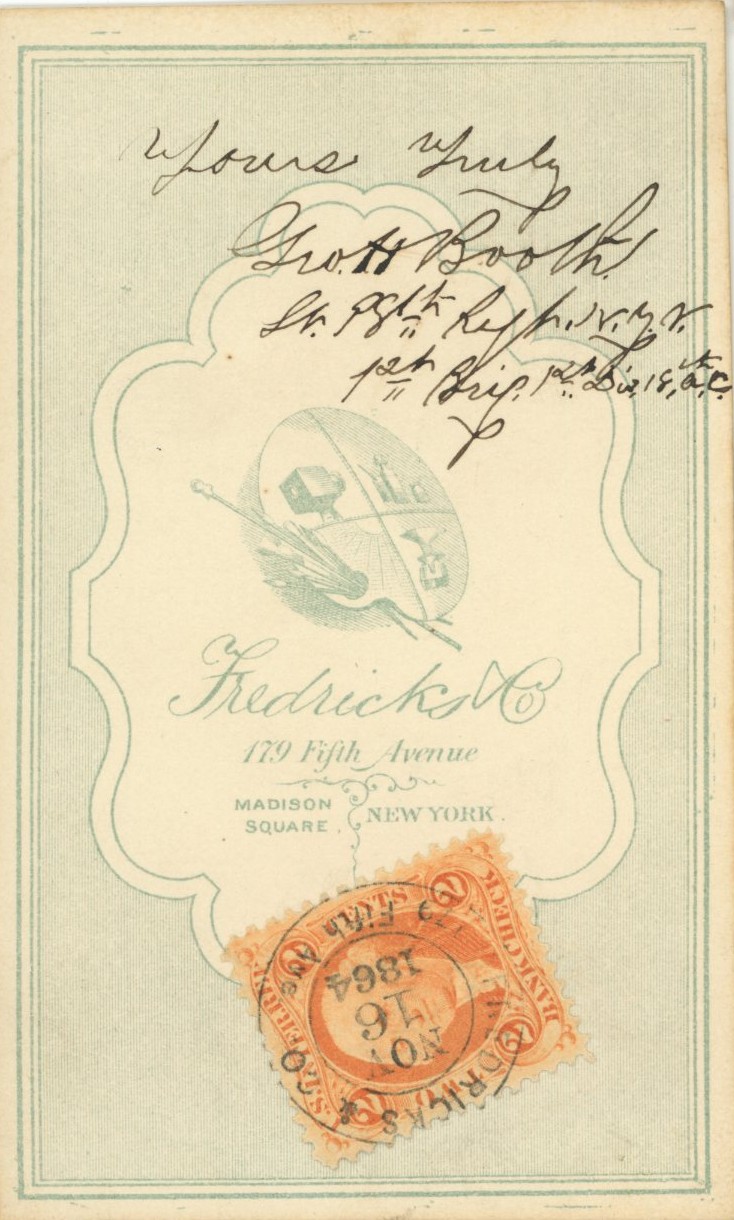 Yours Truly
Geo. H Booth
Lt. 98th Regt. N. Y. V.
1st Brig. 1st Div. 18th A. C.
Fredricks & Co
179 Fifth Avenue
MADISON SQUARE, NEW YORK.
U.S. INTER. REV.
BANK CHECK
2 CENTS 2
2 TWO 2
FREDRICKS & CO
179 Fifth Ave
NOV
16
1864